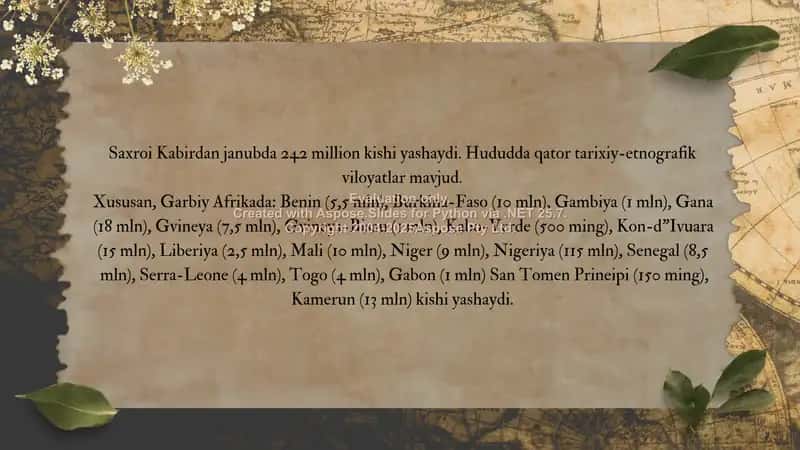 Saxroi Kabirdan janubda 242 million kishi yashaydi. Hududda qator tarixiy-etnografik
viloyatlar mavjud.
Xususan, Garbiy Afrikada: Benin (5,5 mln), Burkina-Faso (10 mln), Gambiya (1 mln), Gana
Evaluation only.
Created with Aspose.Slides for Python via .NET 25.7.
(18 mln), Gvineya (7,5 mln), Gvineya-Bisau (1 mln), Kabo-Verde (500 ming), Kon-d”Ivuara
(15 mln), Liberiya (2,5 mln), Mali (10 mln), Niger (9 mln), Nigeriya (115 mln), Senegal (8,5
mln), Serra-Leone (4 mln), Togo (4 mln), Gabon (1 mln) San Tomen Prineipi (150 ming),
Kamerun (13 mln) kishi yashaydi.